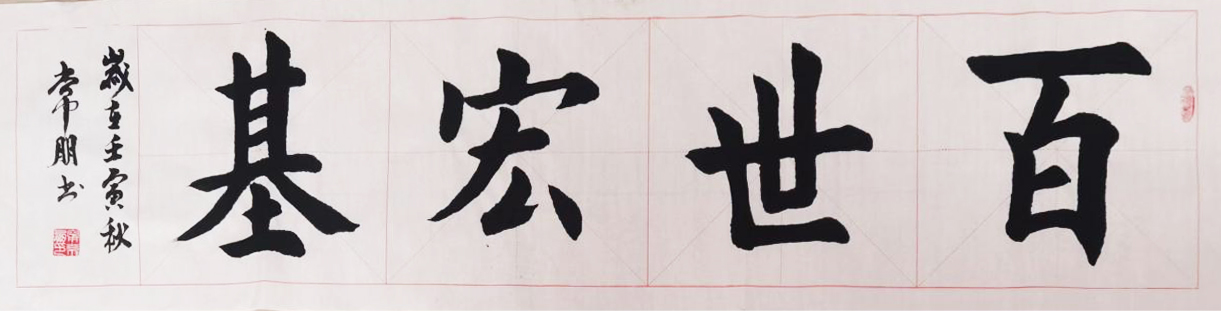 百世宏基
歲在壬寅秋
常朋书